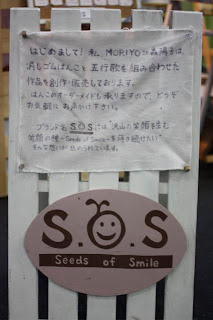 はじめまして!私、MORIYO
消しゴムはんこと五行歌を組み合わせた
作品を創作・販売しております。
はんこのオーダーメイドも承りますので、どうぞ
お気軽にお声かけ下さい。
ブランド名 S.O.S には "沢山の笑顔を生む
笑顔の種 〜Seeds of Smile〜 を蒔き続けたい"
そんな想いが込められています。
S.O.S
Seeds of Smile